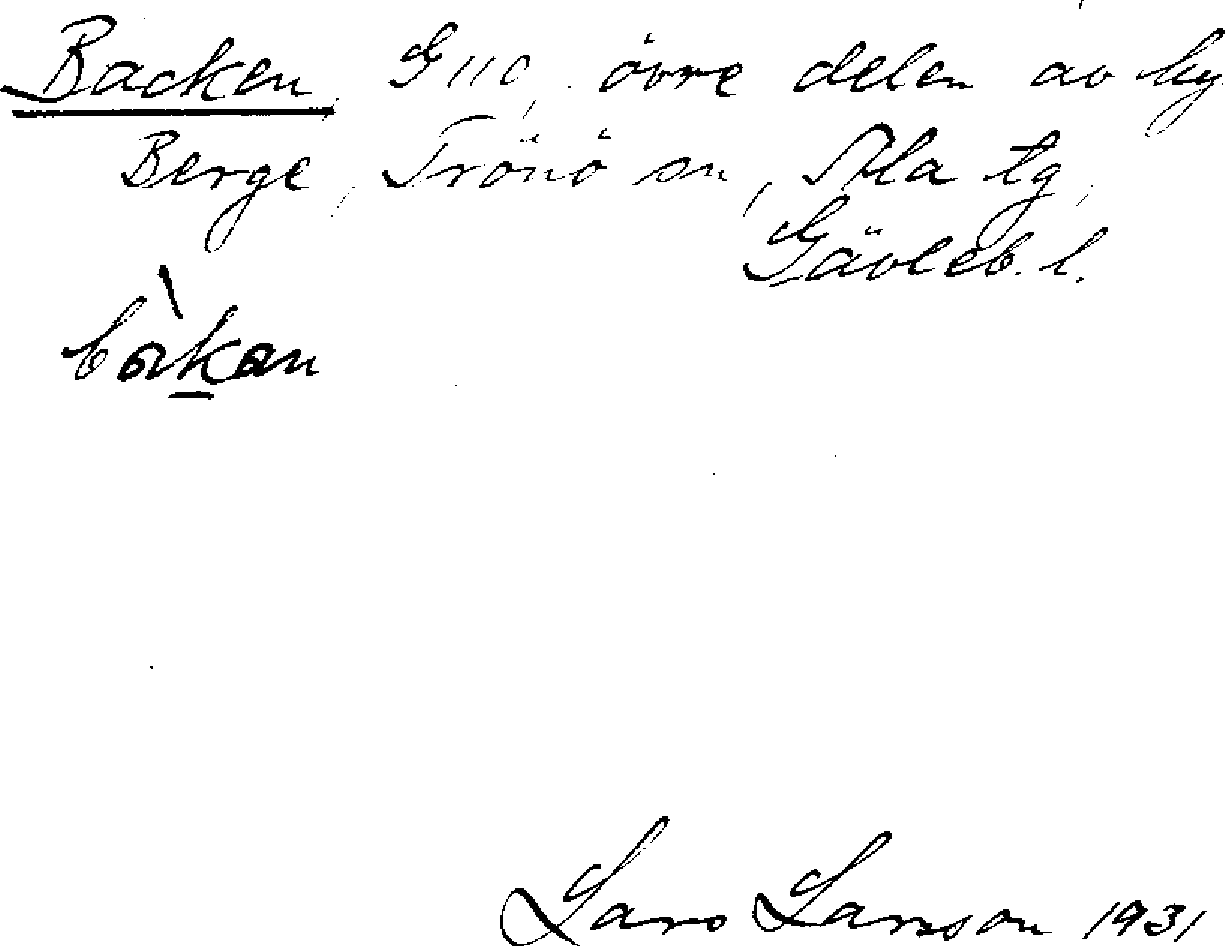 Backen, G 110, övre delen av by
Berge, Trönö sn, Ala tg,
Gävleb. l.
bàkan
Lars Larsson 1931